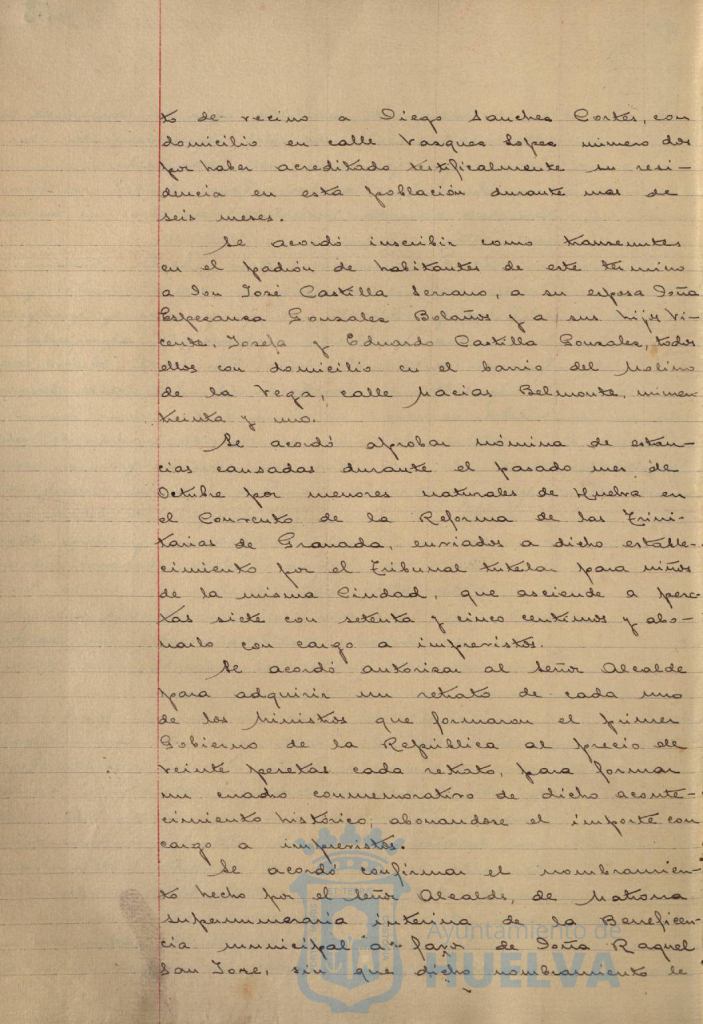 to de vecino a Diego Sanchez Cortés, con
domicilio en calle Vazquez Lopez número dos
por haber acreditado testificalmente su resi-
dencia en esta población durante mas de
seis meses.
Se acordó inscribir como transeuntes
en el padrón de habitantes de este término
a Don José Castilla Serrano, a su esposa Doña
Esperanza Gonzalez Bolaños y a sus hijos Vi-
cente, Josefa y Eduardo Castilla Gonzalez, todos
ellos con domicilio en el barrio del Molino
de la Vega, calle Macias Belmonte, número
treinta y uno.
Se acordó aprobar nómina de estan-
cias causadas durante el pasado mes de
Octubre por menores naturales de Huelva en
el Convento de la Reforma de las Trini-
tarias de Granada, enviados a dicho estable-
cimiento por el Tribunal tutelar para niños
de la misma Ciudad, que asciende a pese-
tas siete con setenta y cinco centimos y abo-
narlo con cargo a imprevistos.
Se acordó autorizar al Señor Alcalde
para adquirir un retrato de cada uno
de los Ministros que formaron el primer
Gobierno de la República al precio de
veinte pesetas cada retrato, para formar
un cuadro conmemorativo de dicho aconte-
cimiento histórico, abonandose el importe con
cargo a imprevistos.
Se acordó confirmar el nombramien-
to hecho por el Señor Alcalde, de Matrona
supernumeraria interina de la Beneficen-
cia municipal a favor de Doña Raquel
San Jose, sin que dicho nombramiento le
Ayuntamiento de
HUELVA